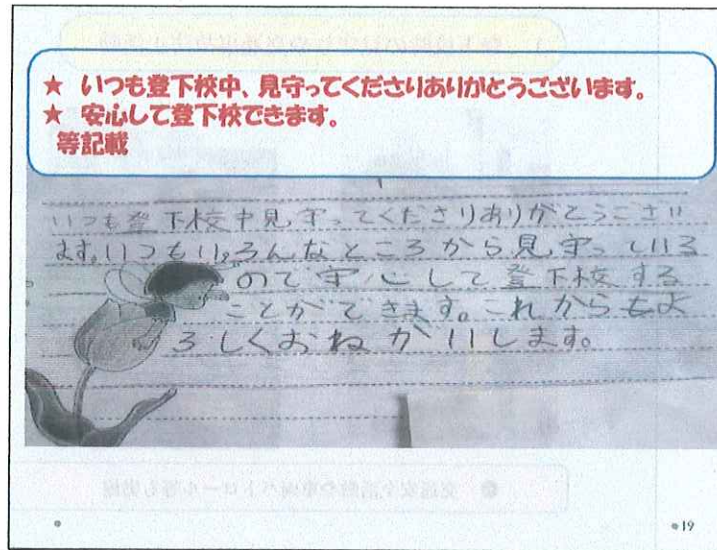 ★ いつも登下校中、見守ってくださりありがとうございます。
★ 安心して登下校できます。
等記載
いつも登下校中見守ってくださりありがとうござい
ます。いつもいろんなところから見守っている
ので安心して登下校する
ことができます。これからもよ
ろしくおねがいします。
19